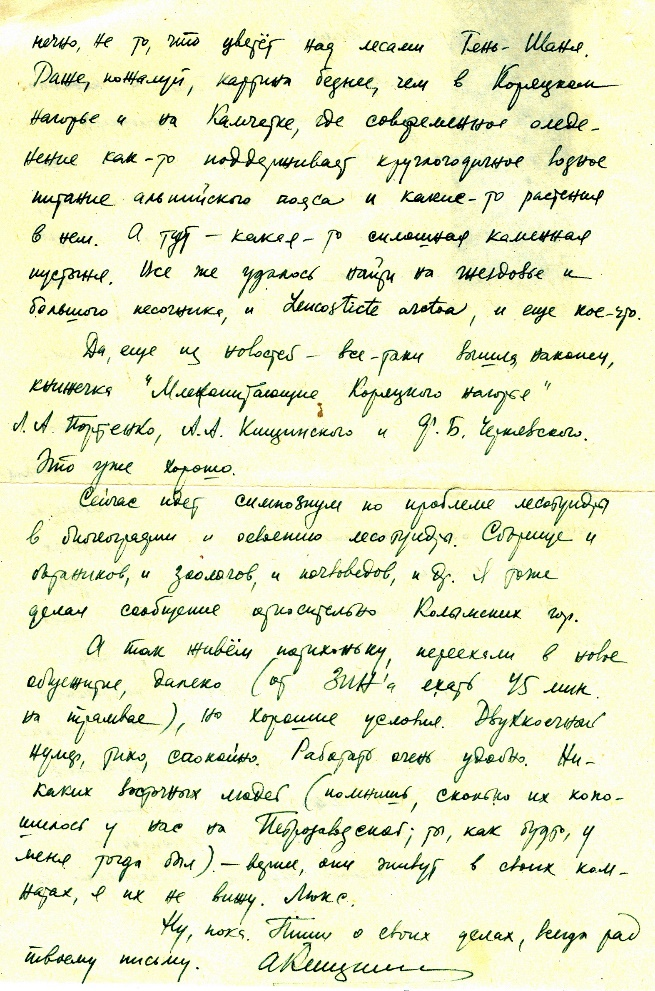 нечно, не то, что цветёт над лесами Тянь-Шаня.
Даже, пожалуй, картина беднее, чем в Корякском
нагорье и на Камчатке, где современное оледе-
нение как-то поддерживает круглогодичное водное
питание альпийского пояса и какие-то растения
в нем. А тут – какая-то сплошная каменная
пустыня. Все же удалось найти на гнездовье и
большого песочника, и Leucosticte arctoa, и еще кое-что.
Да, еще из новостей – все-таки вышла, наконец,
книжечка "Млекопитающие Корякского нагорья"
Л.А. Портенко, А.А. Кищинского и Ф.Б. Чернявского.
Это уже хорошо.
Сейчас идет симпозиум по проблеме лесотундры
в биогеографии и освоению лесотундры. Сборище и
ботаников, и зоологов, и почвоведов, и др. Я тоже
делал сообщение относительно Колымских гор.
А так живём потихоньку, переехали в новое
общежитие, далеко (от ЗИН'а ехать 45 мин.
на трамвае), но хорошие условия. Двухкоечный
номер, тихо, спокойно. Работать очень удобно. Ни-
каких восточных людей (помнишь, сколько их копо-
шилось у нас на Петрозаводской; ты, как будто, у
меня тогда был) – вернее, они живут в своих ком-
натах, я их не вижу. Люкс.
Ну, пока. Пиши о своих делах, всегда рад
твоему письму. АКищинский